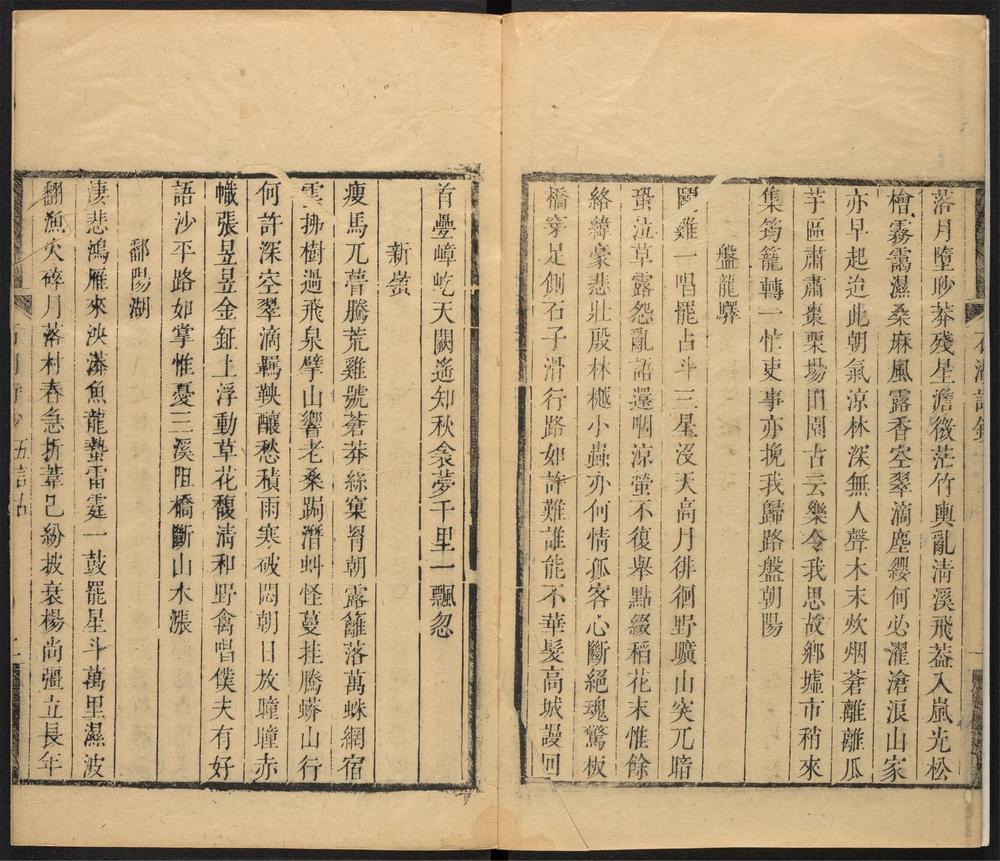 落月墮眇莽殘星澹微茫竹輿亂清溪飛蓋入嵐光松
檜霧靄濕桑麻風露香空翠滴塵纓何必濯滄浪山家
亦早起迨此朝氣涼林深無人聲木末炊烟蒼離離瓜
芋區肅肅棗栗場田園古云樂令我思故鄉墟市稍來
集筠籠轉一忙吏事亦挽我歸路盤朝陽
盤龍驛
鬬雞一唱罷占斗三星沒天高月徘徊野曠山突兀暗
蛩泣草露怨亂語還咽涼螢不復舉點綴稻花末惟餘
絡緯豪悲壯殷林樾小蟲亦何情孤客心斷絕魂驚板
橋穿足側石子滑行路如許難誰能不華髮高城謾回
首疊嶂屹天闕遥知秋衾夢千里一飄忽
新嶺
瘦馬兀瞢騰荒雞號莽蒼絲窠罥朝露籬落萬蛛網宿
雲拂樹過飛泉擘山響老桑跼潛虯怪蔓挂騰蟒山行
何許深空翠滴羈鞅釀愁積雨寒破悶朝日放曈曈赤
幟張昱昱金鉦上浮動草花馥清和野禽唱僕夫有好
語沙平路如掌惟憂三溪阻橋斷山水漲
鄱陽湖
淒悲鴻雁來泱漭魚龍蟄雷霆一鼓罷星斗萬里濕波
翻漁火碎月落村舂急折葦已紛披衰楊尚彊立長年